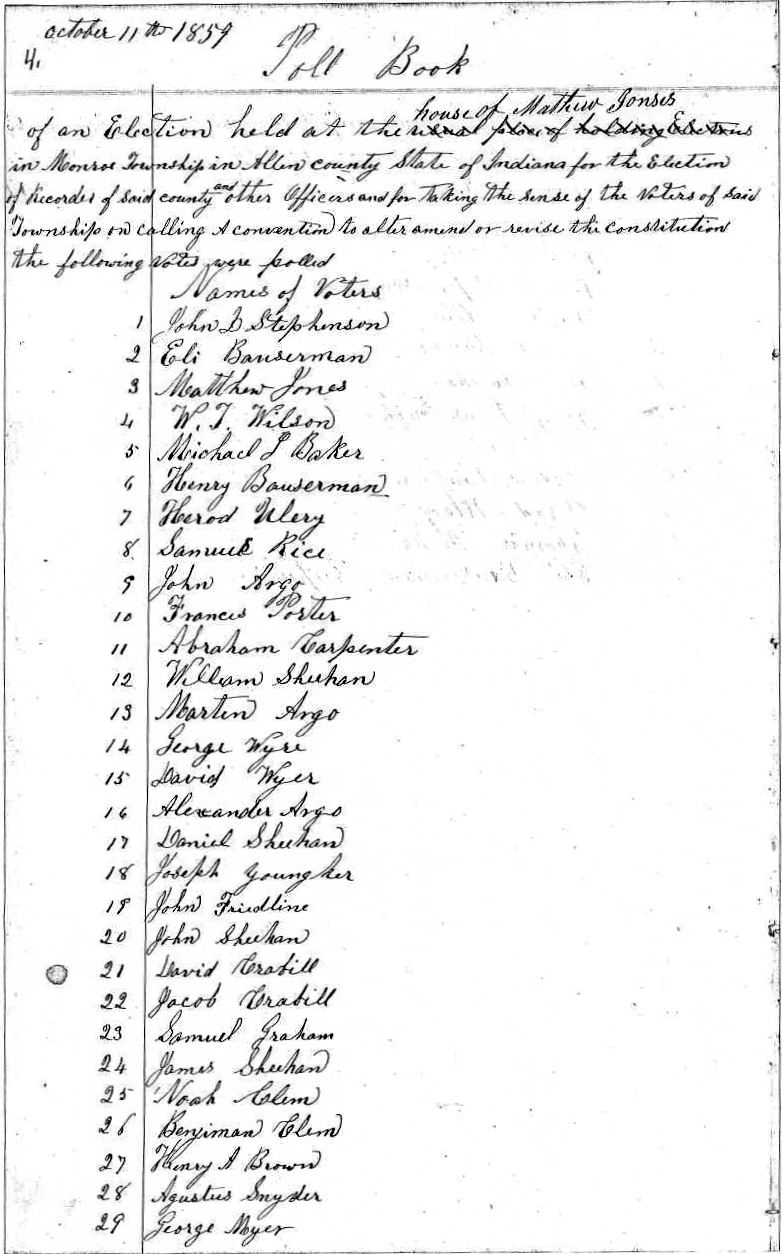 October 11th 1859
4.
Poll Book
house of Mathew Jonses
of an Election held at the usual place of holding Elections
in Monroe Township in Allen county State of Indiana for the Election
of Recorder of said county and other Officers and for taking the sense of the Voters of said
Township on calling A convention to alter amend or revise the constitution
the following votes were polled
Names of Voters
1 John D Stephenson
2 Eli Bauserman
3 Matthew Jones
4 W. T. Wilson
5 Michael L Baker
6 Henry Bauserman
7 Herod Ulery
8 Samuel Rice
9 John Argo
10 Francis Porter
11 Abraham Carpenter
12 William Sheehan
13 Marten Argo
14 George Wyre
15 David Wyer
16 Alexander Argo
17 Daniel Sheehan
18 Joseph Youngker
19 John Friedline
20 John Sheehan
21 David Crabill
22 Jacob Crabill
23 Samuel Graham
24 James Sheehan
25 Noah Clem
26 Benjiman Clem
27 Henry A Brown
28 Agustus Snyder
29 George Myer